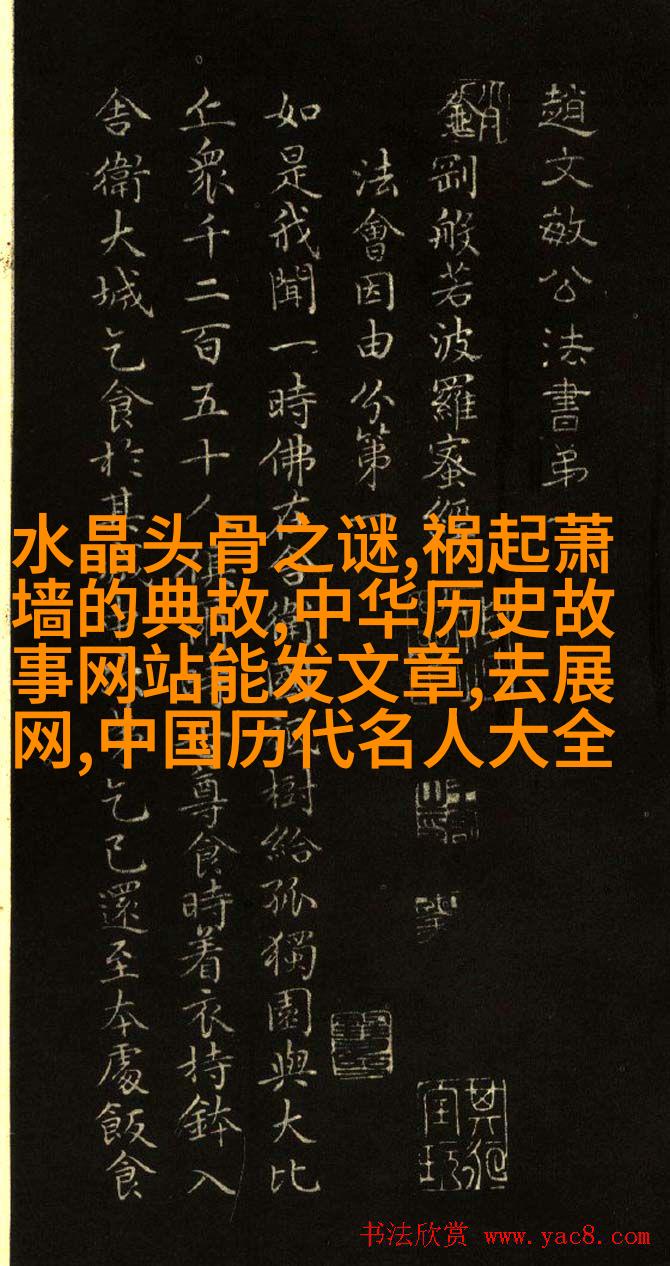 趙文敏公法書弟
金剛般若波羅蜜經
法會因由分第一
如是我聞一時佛在舍衛國祇樹給孤獨園與大比
丘眾千二百五十人俱尊食時着衣持鉢入
舍衛大城乞食於其乞已還至本處飯食
水晶头骨之谜,祸起萧
墙的典故,中华历史故
事网站能发文章,去展
网,中国历代名人大全
书法欣赏 www.yac8.com